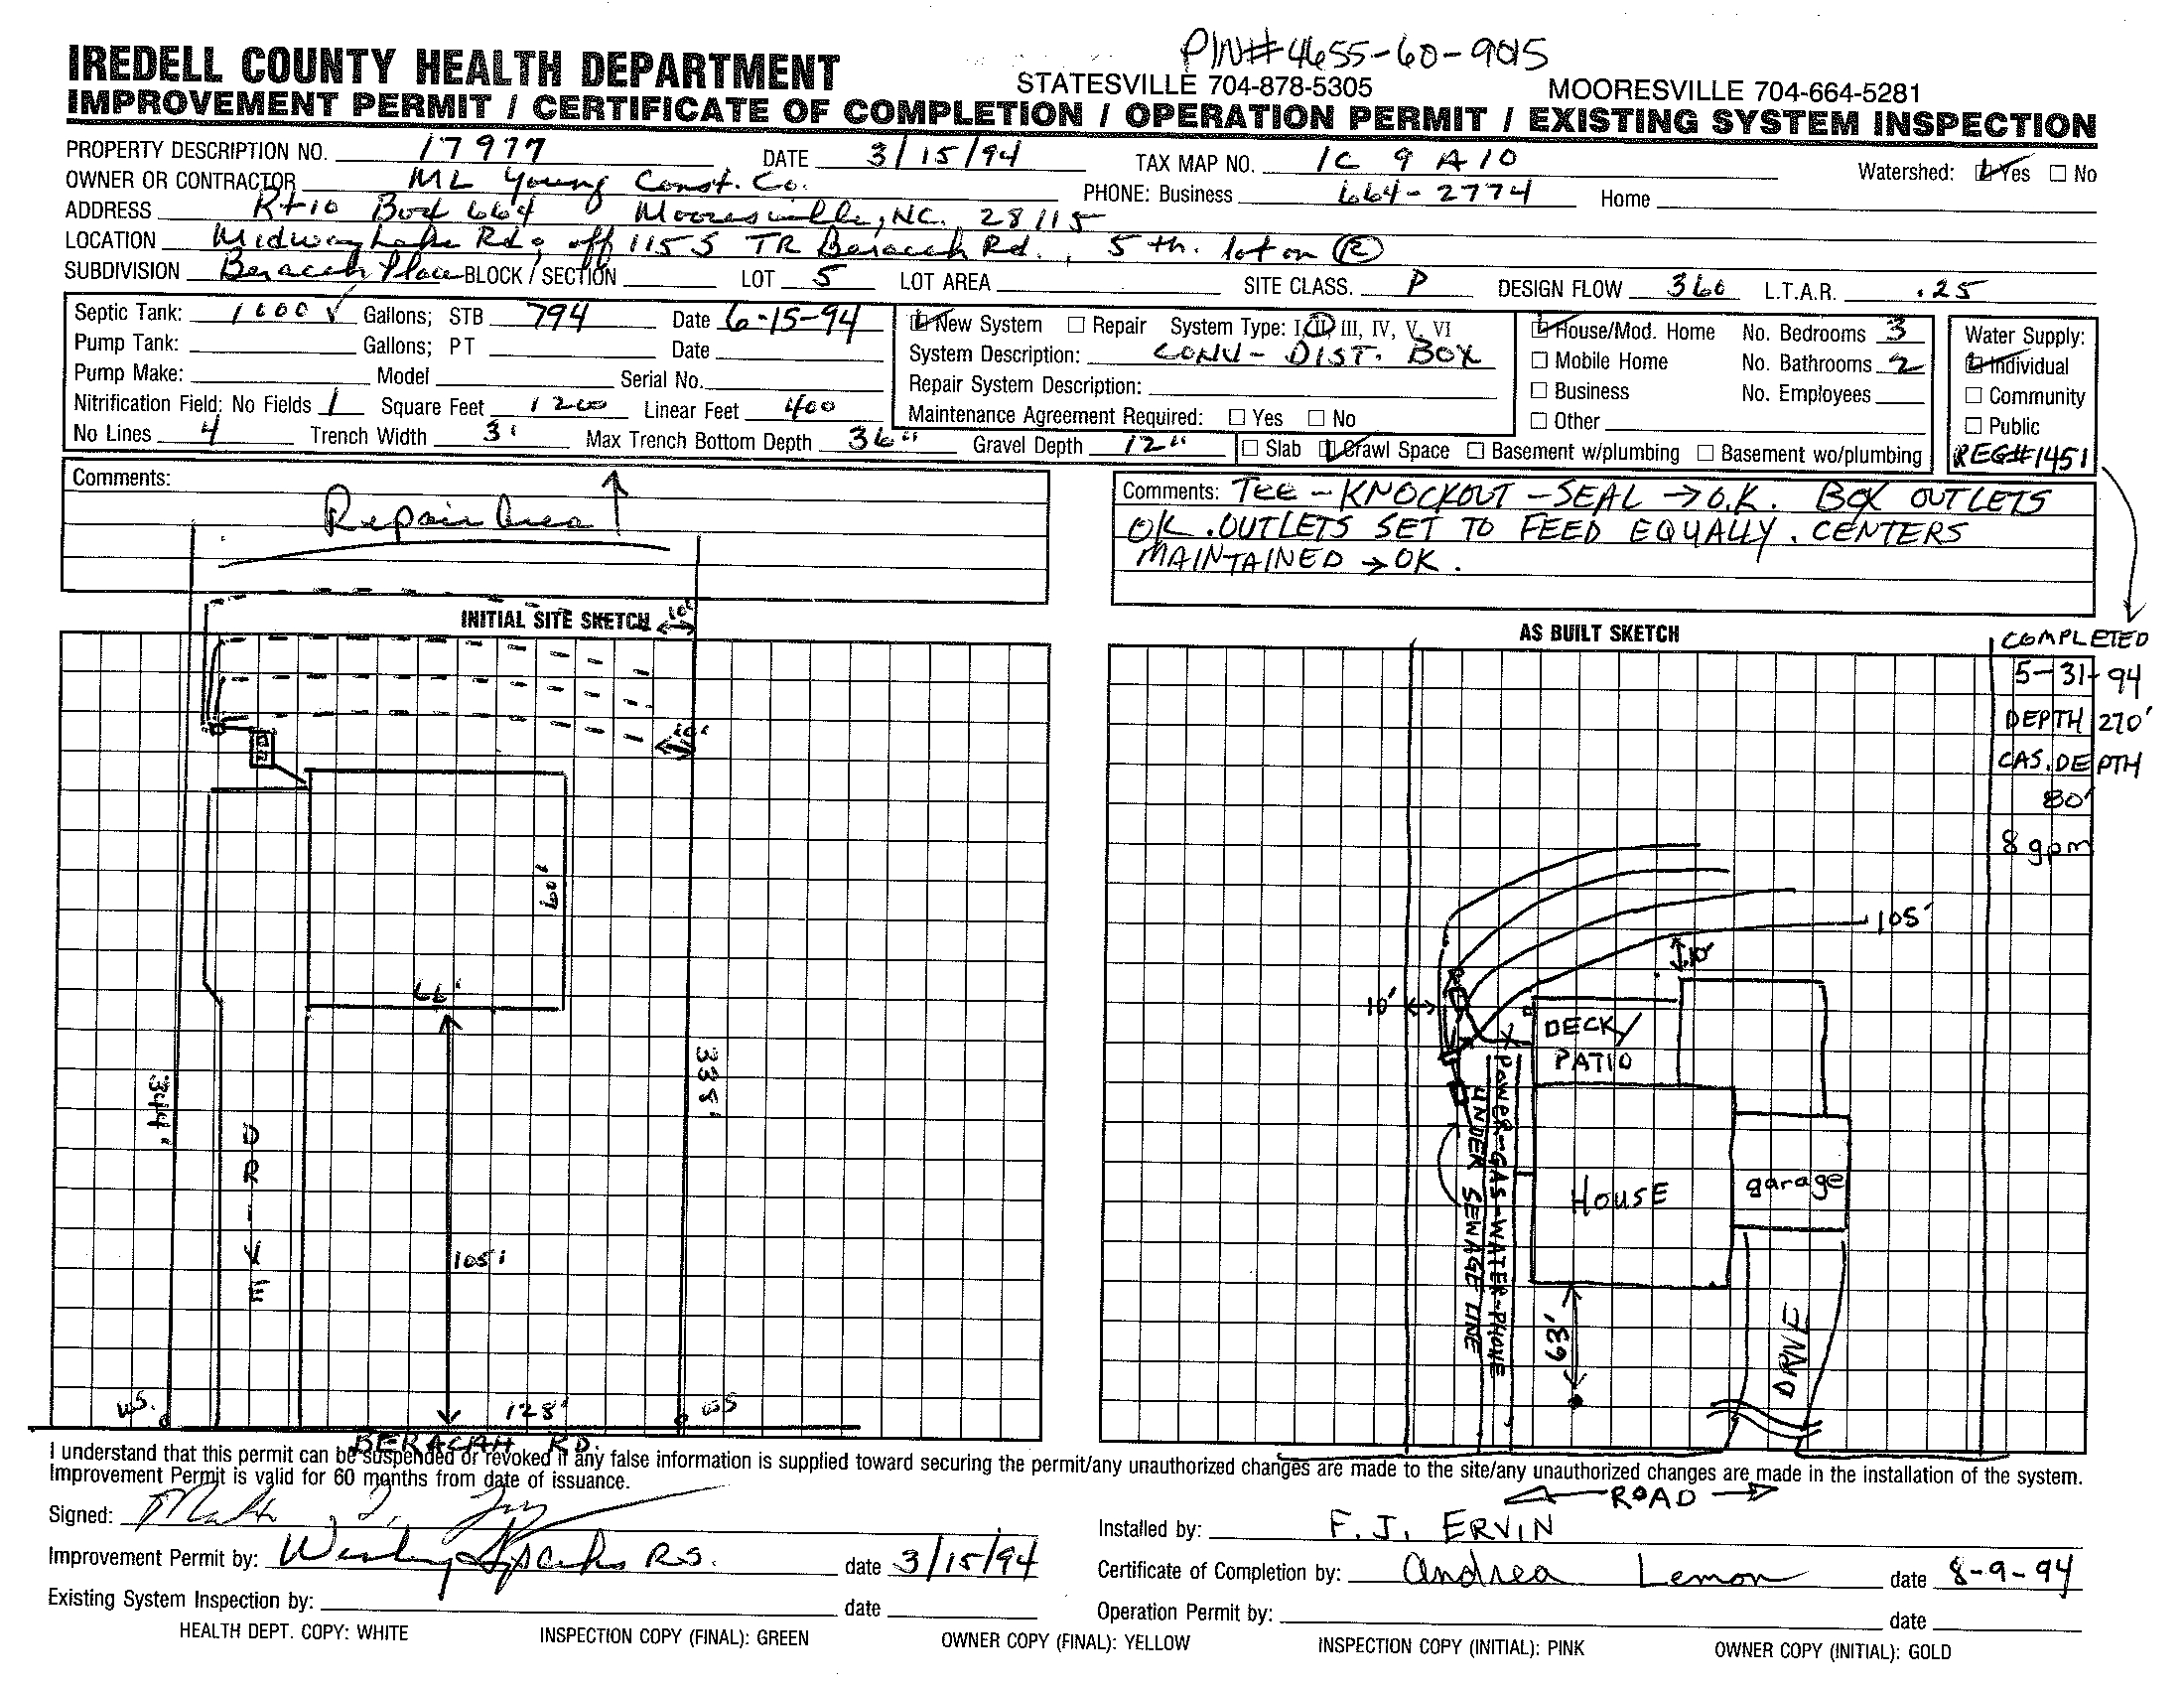 PIN# 4655-60-9015
IREDELL COUNTY HEALTH DEPARTMENT STATESVILLE 704-878-5305 MOORESVILLE 704-664-5281
IMPROVEMENT PERMIT / CERTIFICATE OF COMPLETION / OPERATION PERMIT / EXISTING SYSTEM INSPECTION
PROPERTY DESCRIPTION NO. 17977 DATE 3/15/94 TAX MAP NO. 1C 9 A 10 Watershed: Yes No
OWNER OR CONTRACTOR ML Young Const. Co. PHONE: Business 664-2774 Home
ADDRESS Rt 10 Box 664 Mooresville, NC. 28115
LOCATION Midway Lake Rd, off 115 S TR Beracah Rd., 5 th. lot on R
SUBDIVISION Beracah Place BLOCK / SECTION LOT 5 LOT AREA SITE CLASS. P DESIGN FLOW 360 L.T.A.R. .25
Septic Tank: 1000 ✓ Gallons; STB 794 Date 6-15-94
Pump Tank: Gallons; PT Date
Pump Make: Model Serial No.
Nitrification Field: No Fields 1 Square Feet 1200 Linear Feet 400
No Lines 4 Trench Width 3' Max Trench Bottom Depth 36" Gravel Depth 12"
New System Repair System Type: I, II, III, IV, V, VI
System Description: CONV- DIST. BOX
Repair System Description:
Maintenance Agreement Required: Yes No
House/Mod. Home No. Bedrooms 3
Mobile Home No. Bathrooms 2
Business No. Employees
Other
Slab Crawl Space Basement w/plumbing Basement wo/plumbing
Water Supply:
Individual
Community
Public
REG#1451
Comments:
Repair Area
Comments: TEE - KNOCKOUT - SEAL → O.K. BOX OUTLETS
OK. OUTLETS SET TO FEED EQUALLY. CENTERS
MAINTAINED → OK.
INITIAL SITE SKETCH
10'
10'
60'
66'
338'
344'
DRIVE
105'
128'
BERACAH RD.
AS BUILT SKETCH
COMPLETED
5-31-94
DEPTH 270'
CAS. DEPTH
80'
8 gpm
105'
10'
10'
DECK/
PATIO
POWER-GAS-WATER-PHONE
UNDER SEWAGE LINE
HOUSE
garage
63'
DRIVE
I understand that this permit can be suspended or revoked if any false information is supplied toward securing the permit/any unauthorized changes are made to the site/any unauthorized changes are made in the installation of the system.
Improvement Permit is valid for 60 months from date of issuance.
ROAD
Signed:
Installed by: F. J. ERVIN
Improvement Permit by: Wesley Speaks RS. date 3/15/94
Certificate of Completion by: Andrea Lemon date 8-9-94
Existing System Inspection by: date
Operation Permit by: date
HEALTH DEPT. COPY: WHITE INSPECTION COPY (FINAL): GREEN OWNER COPY (FINAL): YELLOW INSPECTION COPY (INITIAL): PINK OWNER COPY (INITIAL): GOLD